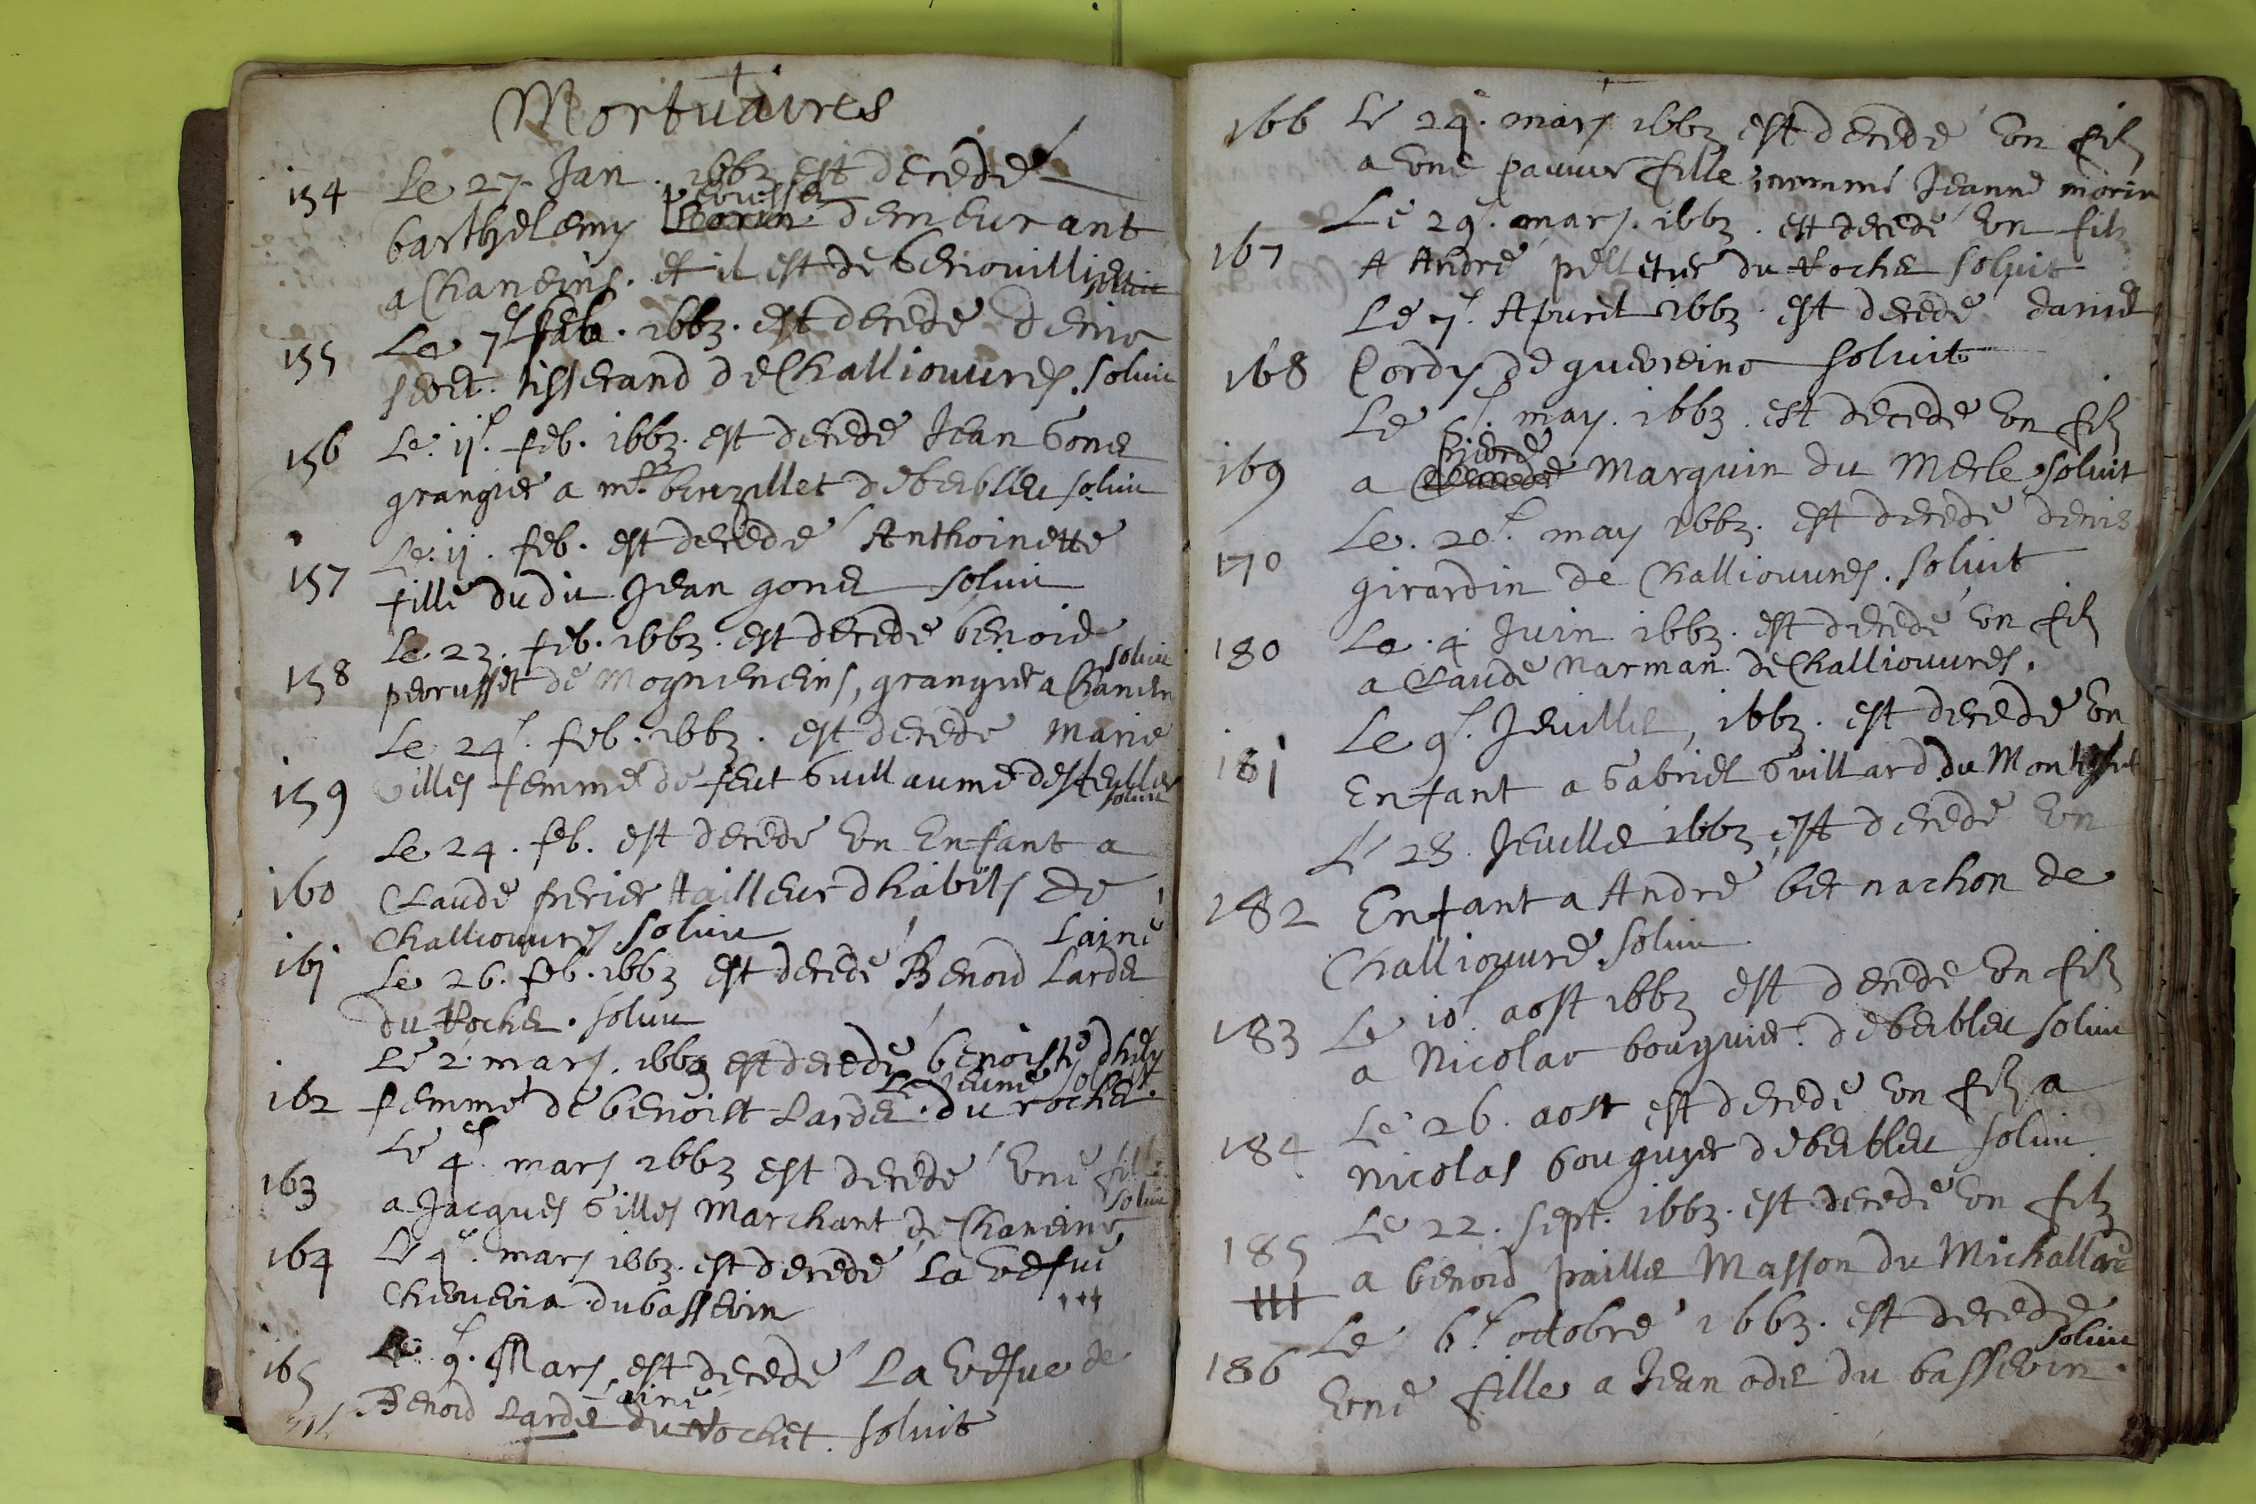 Mortuaires
154 Le 27. Jan. 1663 est decedé
barthelemy perrusset demeurant
a Chaneins. et il est de Genouillieu
155 Le 7e feb. 1663. est decedé denis
tisserand de Challiouures. soluit
156 Le. 11e. feb. 1663. est decedé Jean Gone
grangier a mr. de berbleu soluit
157 Le. 11. feb. est decedé Anthoinette
fille dudit Jean gone soluit
158 Le 23. feb. 1663. est decedé benoid
soluit
perrusset de Mogneneins, grangier a Chanein
159 Le 24e. feb. 1663. est decedé Marie
Gilles femme de feut Guillaume desfeulles
soluit
Le 24. feb. est decedé un Enfant a
160 Claude frerier tailleur dhabits de
Challiouures soluit
Lainé
161 Le 26. feb. 1663 est decedé Benoid Lardet
du Rochet. soluit
Le 2. mars. 1663 est decedé benoiste
Le Jeune soluit
162 femme de benoist Lardet. du rochet.
Le 4e. mars 1663 est decedé une fille
163 a Jacques Gilles Marchant de Chaneins
soluit
164 Le 4e. mars 1663. est decedé La vefue
du basseuin
165 Le 9e. Mars est decedé La vefue de
lainé
Benoid Lardet du Rochet. soluit
166 Le 24. mars 1663 est decedé un filz
a une pauure fille, nommé Jeanne morin
167 Le 29e. mars. 1663. est decedé un filz
A André pelletier du Rochet soluit
Le 7e. Apuril 1663 est decedé daniel
168 Cordy de guereins soluit
Le may. 1663. est decedé un filz
pierre
169 a Marguin du Merle soluit
Le. 20e. may 1663. est decedé denis
170 girardin de Challiouures. soluit
180 Le. 4 Juin 1663. est decedé un filz
a Claude Narman de Challiouures.
Le 9e. Jeuillet, 1663. est decedé un
181 Enfant a Gabriel Guillard du
Le 28. Jeuillet 1663 est decedé un
182 Enfant a André bernachon de
Challiouure soluit
183 Le 10e. aost 1663 est decedé un filz
a Nicolas bouguier. de berbleu soluit
184 Le 26. aost est decedé un filz a
Nicolas bouguyer de berbleu soluit
Le 22. sept. 1663. est decedé un filz
185 a benoid paillet Masson du Michallard
Le 6e. octobre 1663. est decedé
soluit
186 une fille a Jean odet du basseuin.